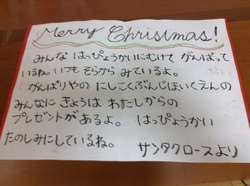 Merry Christmas!
みんな はっぴょうかいにむけて がんばって
いるね。いつも そらから みているよ。
がんばりやの にしこくぶんじほいくえんの
みんなに きょうは わたしからの
プレゼントが あるよ。 はっぴょうかい
たのしみにしているね。
サンタクロースより